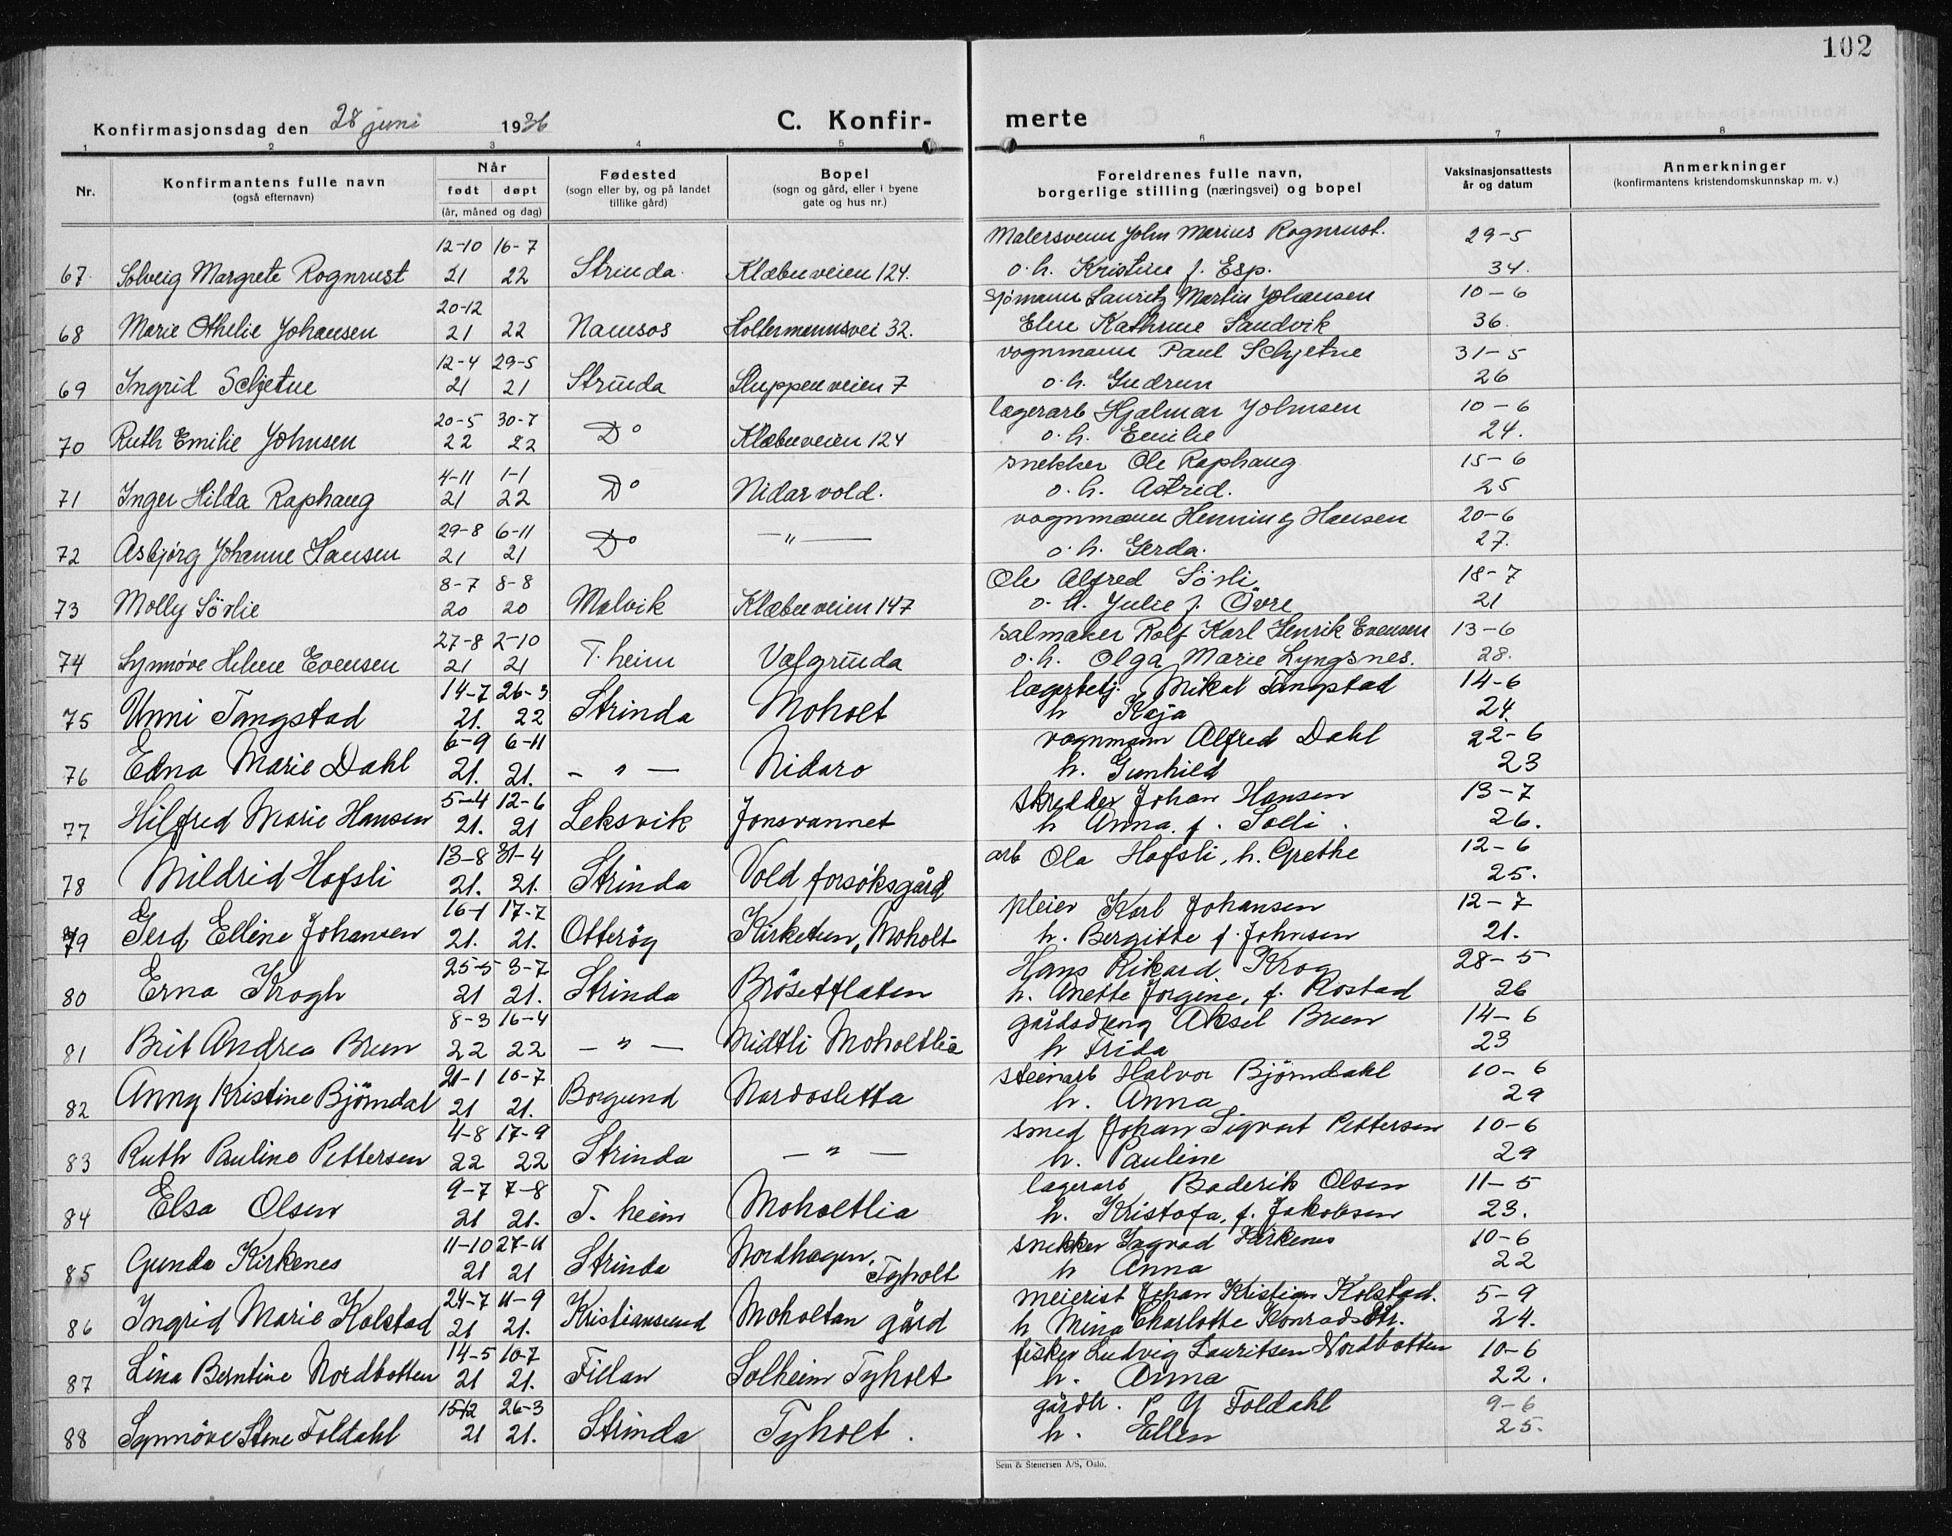 102
Konfirmasjonsdag den 28 juni 1936 C. Konfir- merte
1 2 3 4 5 6 7 8
Nr. Konfirmantens fulle navn (også efternavn) Når født døpt (år, måned og dag) Fødested (sogn eller by, og på landet tillike gård) Bopel (sogn og gård, eller i byene gate og hus nr.) Foreldrenes fulle navn, borgerlige stilling (næringsvei) og bopel Vaksinasjonsattests år og datum Anmerkninger (konfirmantens kristendomskunnskap m. v.)
12-10 16-7 Malersvenn John Marius Rognrust. 29-5
67. Solveig Margrete Rognrust 21 22 Strinda. Klæbuveien 124. o.h. Kristine f. Esp. 34.
20-12 Sjömann Lauritz Martin Johansen 10-6
68 Marie Othelie Johansen 21 22 Namsos Holtermannsvei 32. Eline Kathrine Sandvik 36.
12-4 29-5 vognmann Paul Schjetne 31-5
69 Ingrid Schjetne 21 21 Strinda Sluppenveien 7 o.h. Gudrun 26
20-5 30-7 lagerarb Hjalmar Johnsen 10-6
70 Ruth Emilie Johnsen 22 22 Do Klæbuveien 124 o.h. Emilie 24.
4-11 1-1 snekker Ole Raphaug. 15-6
71 Inger Hilda Raphaug 21 22 Do Nidarvold. o.h. Astrid. 25
29-8 6-11 vognmann Henning Hansen 20-6
72 Asbjørg Johanne Hansen 21 21 Do —„— o.h. Gerda. 27.
8-7 8-8 Ole Alfred Sörli 18-7
73 Molly Sörlie 20 20 Malvik Klæbuveien 147 o.h. Julie f. Övre 21
27-8 2-10 salmaker Rolf Karl Henrik Evensen 13-6
74 Synnøve Helene Evensen 21 21 T.heim Valgrinda o.h. Olga Marie Lyngsnes. 28.
14-7 26-3 lagerbetj. Mikal Tangstad 14-6
75 Unni Tangstad 21. 22 Strinda Moholt h Kaja 24.
6-9 6-11 vognmann Alfred Dahl 22-6
76 Edna Marie Dahl 21. 21. — „ — Nidaro h. Gunhild 23
5-4 12-6 Skredder Johan Hansen 13-7
77 Hilfred Marie Hansen 21. 21 Leksvik Jonsvannet h Anna f. Solli. 26.
13-8 31-4 arb Ola Hofsli, h. Grethe 12-6
78 Mildrid Hofsli 21. 21. Strinda Vold forsöksgård 25.
16-1 17-7 pleier Karl Johansen 12-7
79 Gerd Elline Johansen 21. 21. Otteröy Kirketun, Moholt h. Bergitte f. Johnsen 21.
25-5 3-7 Hans Rikard Krog 28-5
80 Erna Krogh 21 21. Strinda Brösetflaten h. Anette Jorgine, f. Rostad 26
8-3 16-4 gårdsdreng Aksel Bruen 14-6
81 Brit Andrea Bruen 22 22 — „ — Midtli Moholtlia h Frida 23
21-1 10-7 steinarb Halvor Björndahl 10-6
82 Anny Kristine Björndal 21 21. Borgund Nardosletta h. Anna 29
4-8 17-9 smed Johan Sigvart Pettersen 10-6
83 Ruth Pauline Pettersen 22 22 Strinda — „ — h. Pauline 29
9-7 7-8 lagerarb Baderik Olsen 11-5
84 Elsa Olsen 21 21. T. heim Moholtlia h. Kristofa, f. Jakobsen 23.
11-10 27-11 Nordhagen, snekker Ingvad Kirkenes 10-6
85 Gunda Kirkenes 21 21 Strinda Tyholt h Anna 22
24-7 11-9 meierist Johan Kristian Kolstad. 5-9
86 Ingrid Marie Kolstad 21 21. Kristiansund Moholtan gård h Mina Charlotte Konradsdtr. 24.
14-5 10-7 fisker Ludvig Lauritsen Nordbotten 10-6
87 Lina Berntine Nordbotten 21 21. Fillan Solheim Tyholt h. Anna 22.
15-12 26-3 gårdbr. P Y Foldahl 9-6
88 Synnöve Stene Foldahl 21 21. Strinda Tyholt. h. Ellen 25.
Sem & Stenersen A/S, Oslo.